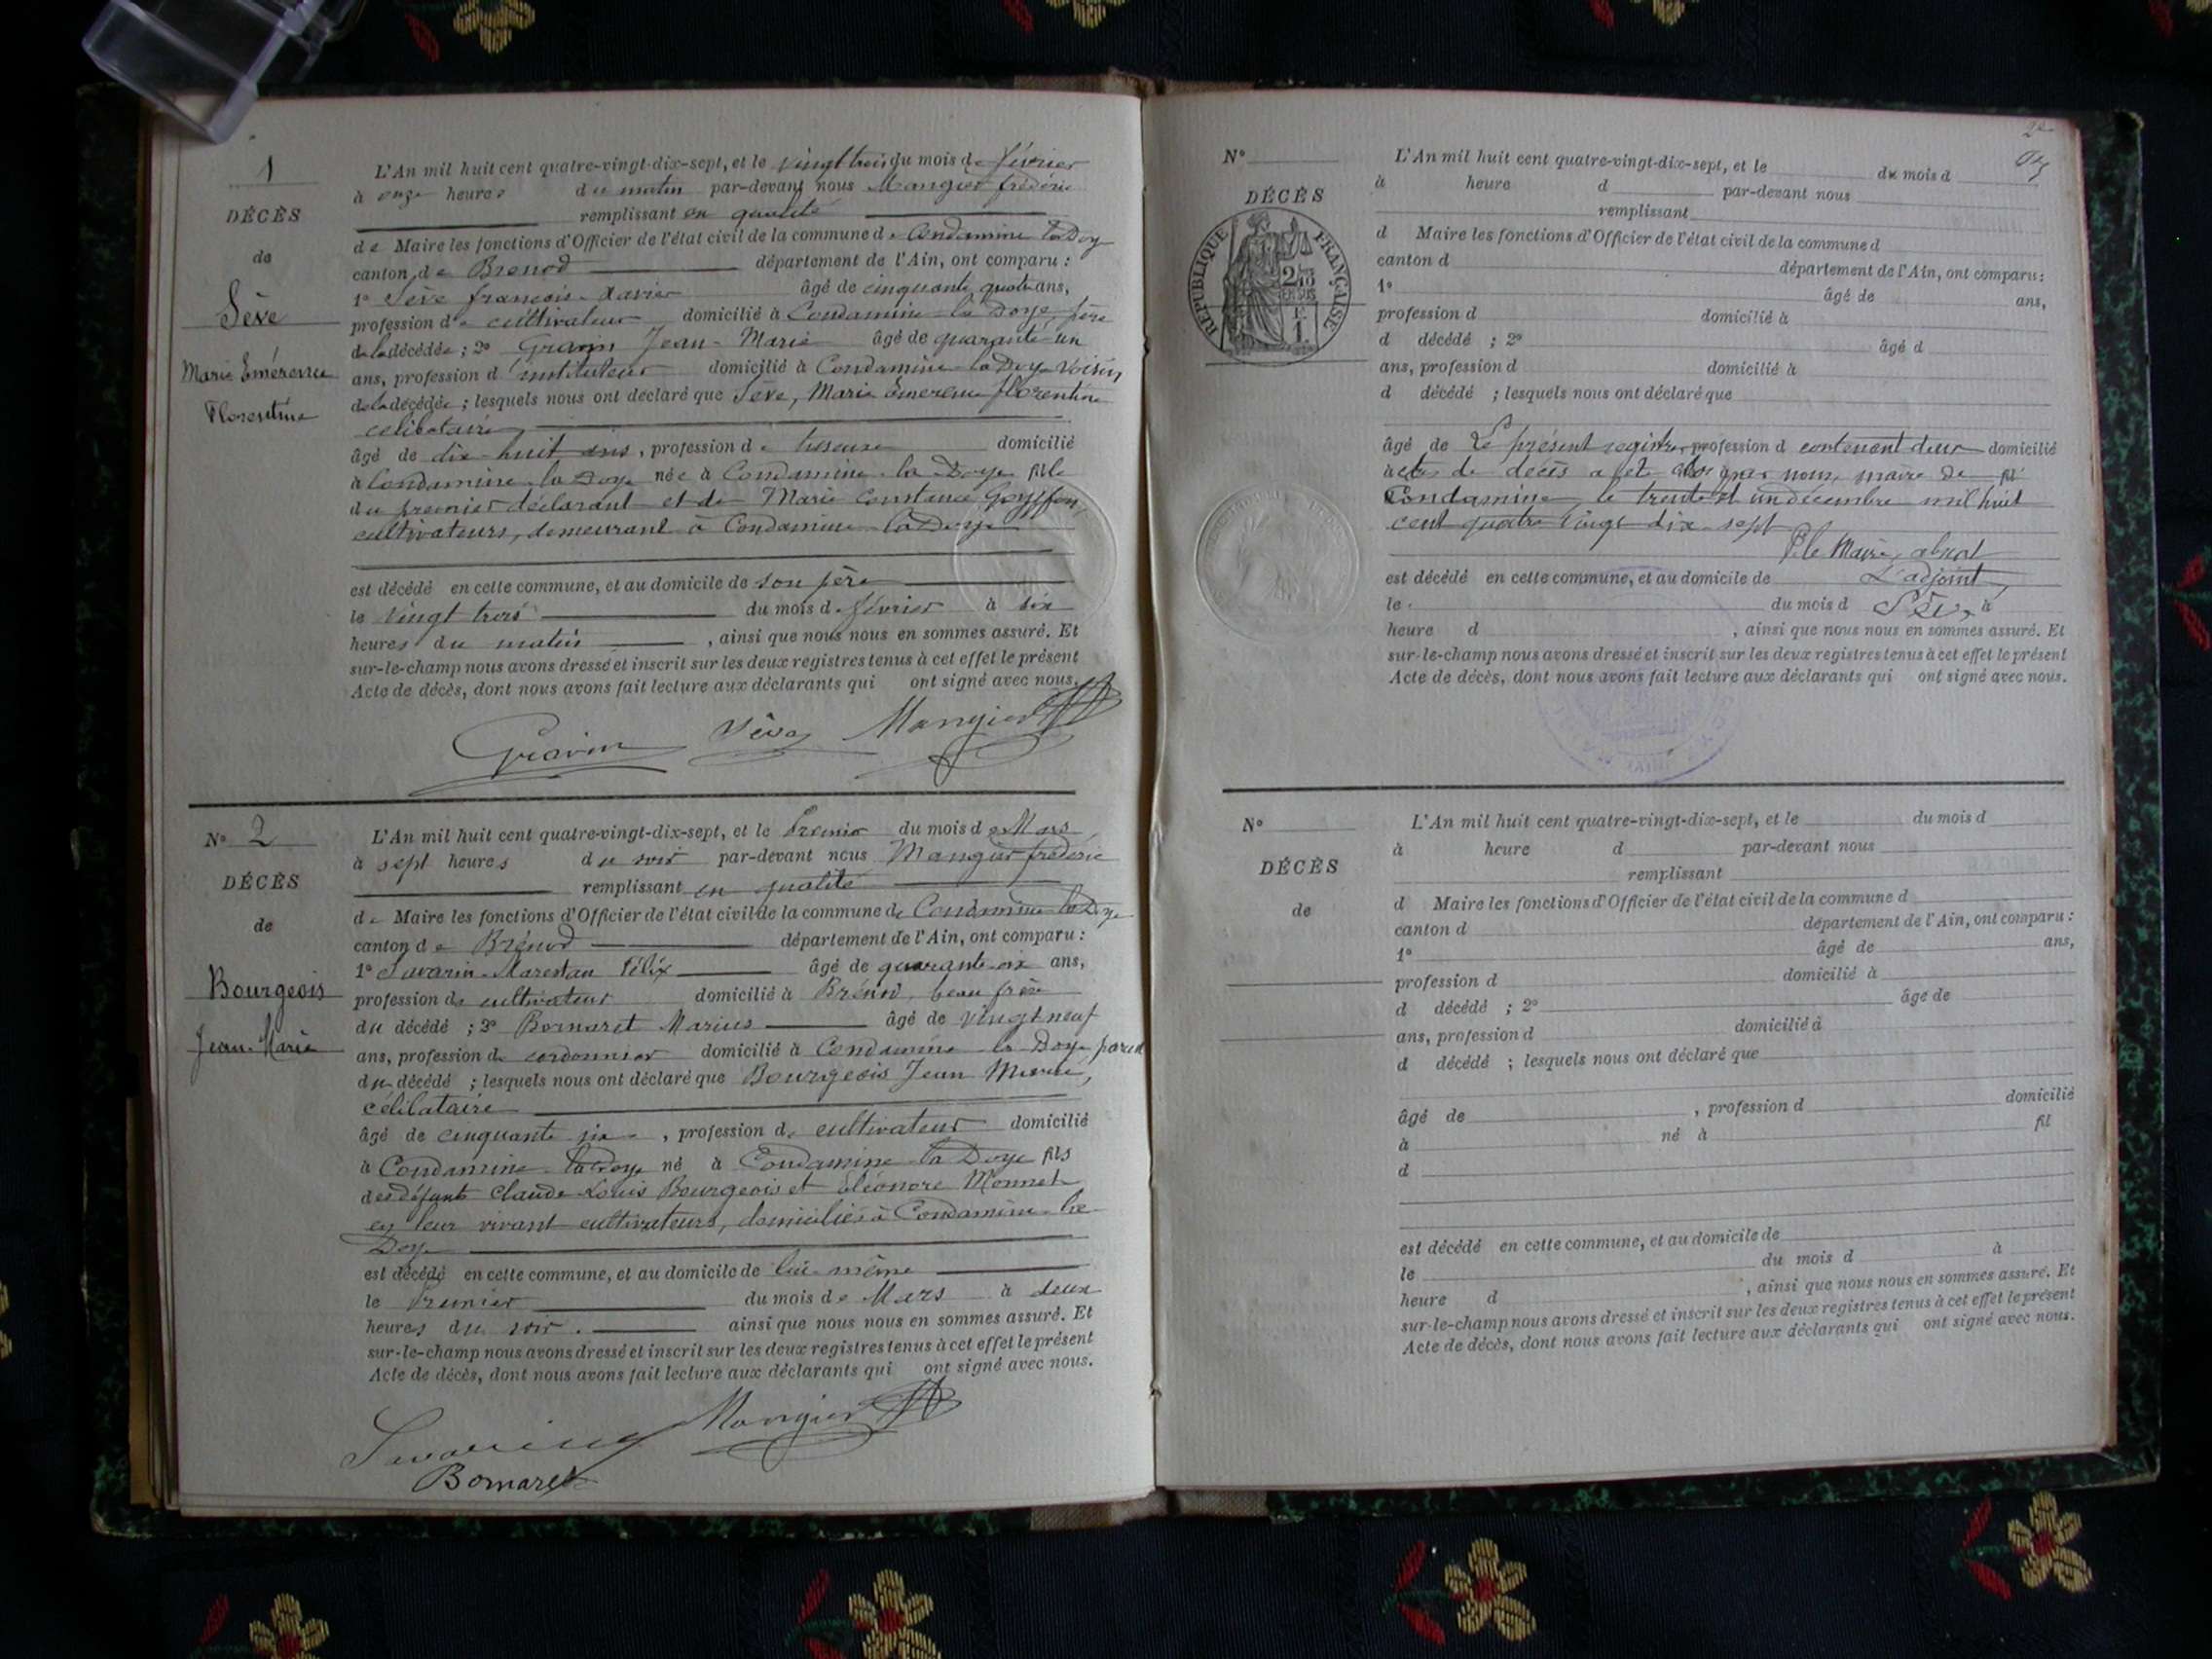 1
DÉCÈS
de
Sève
Marie Emérence
Florentine
L'An mil huit cent quatre-vingt-dix-sept, et le vingt trois du mois de février
à onze heures du matin par-devant nous Mangier frédéric
remplissant en qualité
de Maire les fonctions d'Officier de l'état civil de la commune de Condamine la Doye
canton de Brenod département de l'Ain, ont comparu :
1º Sève françois-Xavier âgé de cinquante quatre ans,
profession de cultivateur domicilié à Condamine la Doye père
de la décédée ; 2º Jean-Marie âgé de quarante un
ans, profession d'instituteur domicilié à Condamine la Doye voisin
de la décédée ; lesquels nous ont déclaré que Sève, Marie Emérence florentine
célibataire
âgé de dix-huit ans, profession de tisseuse domicilié
à Condamine la Doye née à Condamine la Doye fille
du premier déclarant et de Marie Constance Goyffon,
cultivateurs, demeurant à Condamine la Doye
est décédé en cette commune, et au domicile de son père
le vingt trois du mois de février à six
heures du matin , ainsi que nous nous en sommes assuré. Et
sur-le-champ nous avons dressé et inscrit sur les deux registres tenus à cet effet le présent
Acte de décès, dont nous avons fait lecture aux déclarants qui ont signé avec nous.
Sève Mangier
Nº 2
DÉCÈS
de
Bourgeois
Jean-Marie
L'An mil huit cent quatre-vingt-dix-sept, et le Premier du mois de Mars
à sept heures du soir par-devant nous Mangier frédéric
remplissant en qualité
de Maire les fonctions d'Officier de l'état civil de la commune de Condamine la Doye
canton de Brénod département de l'Ain, ont comparu :
1º Savarin-Marestan Félix âgé de quarante ans,
profession de cultivateur domicilié à Brénod, beau frère
du décédé ; 2º Bornaret Marius âgé de vingt neuf
ans, profession de cordonnier domicilié à Condamine la Doye parent
du décédé ; lesquels nous ont déclaré que Bourgeois Jean Marie,
célibataire
âgé de cinquante six , profession de cultivateur domicilié
à Condamine la Doye né à Condamine la Doye fils
des défunts Claude-Louis Bourgeois et Eléonore Monnet
en leur vivant cultivateurs, domiciliés à Condamine la
Doye
est décédé en cette commune, et au domicile de lui-même
le Premier du mois de Mars à deux
heures du soir. ainsi que nous nous en sommes assuré. Et
sur-le-champ nous avons dressé et inscrit sur les deux registres tenus à cet effet le présent
Acte de décès, dont nous avons fait lecture aux déclarants qui ont signé avec nous.
Savarin Mangier
Bornaret
Nº
DÉCÈS
RÉPUBLIQUE FRANÇAISE
L'An mil huit cent quatre-vingt-dix-sept, et le du mois d
à heure d par-devant nous
remplissant
d Maire les fonctions d'Officier de l'état civil de la commune d
canton d département de l'Ain, ont comparu :
1º âgé de ans,
profession d domicilié à
d décédé ; 2º âgé d
ans, profession d domicilié à
d décédé ; lesquels nous ont déclaré que
âgé de Le présent registre profession d contenant deux domicilié
actes de décès a été clos par nous, maire de fil
Condamine, le trente et un décembre mil huit
cent quatre vingt dix-sept
P. le Maire, absent
est décédé en cette commune, et au domicile de L'adjoint,
le du mois d Sève à
heure d , ainsi que nous nous en sommes assuré. Et
sur-le-champ nous avons dressé et inscrit sur les deux registres tenus à cet effet le présent
Acte de décès, dont nous avons fait lecture aux déclarants qui ont signé avec nous.
Nº
DÉCÈS
de
L'An mil huit cent quatre-vingt-dix-sept, et le du mois d
à heure d par-devant nous
remplissant
d Maire les fonctions d'Officier de l'état civil de la commune d
canton d département de l'Ain, ont comparu :
1º âgé de ans,
profession d domicilié à
d décédé ; 2º âgé de
ans, profession d domicilié à
d décédé ; lesquels nous ont déclaré que
âgé de , profession d domicilié
à né à fil
d
est décédé en cette commune, et au domicile de
le du mois d à
heure d , ainsi que nous nous en sommes assuré. Et
sur-le-champ nous avons dressé et inscrit sur les deux registres tenus à cet effet le présent
Acte de décès, dont nous avons fait lecture aux déclarants qui ont signé avec nous.